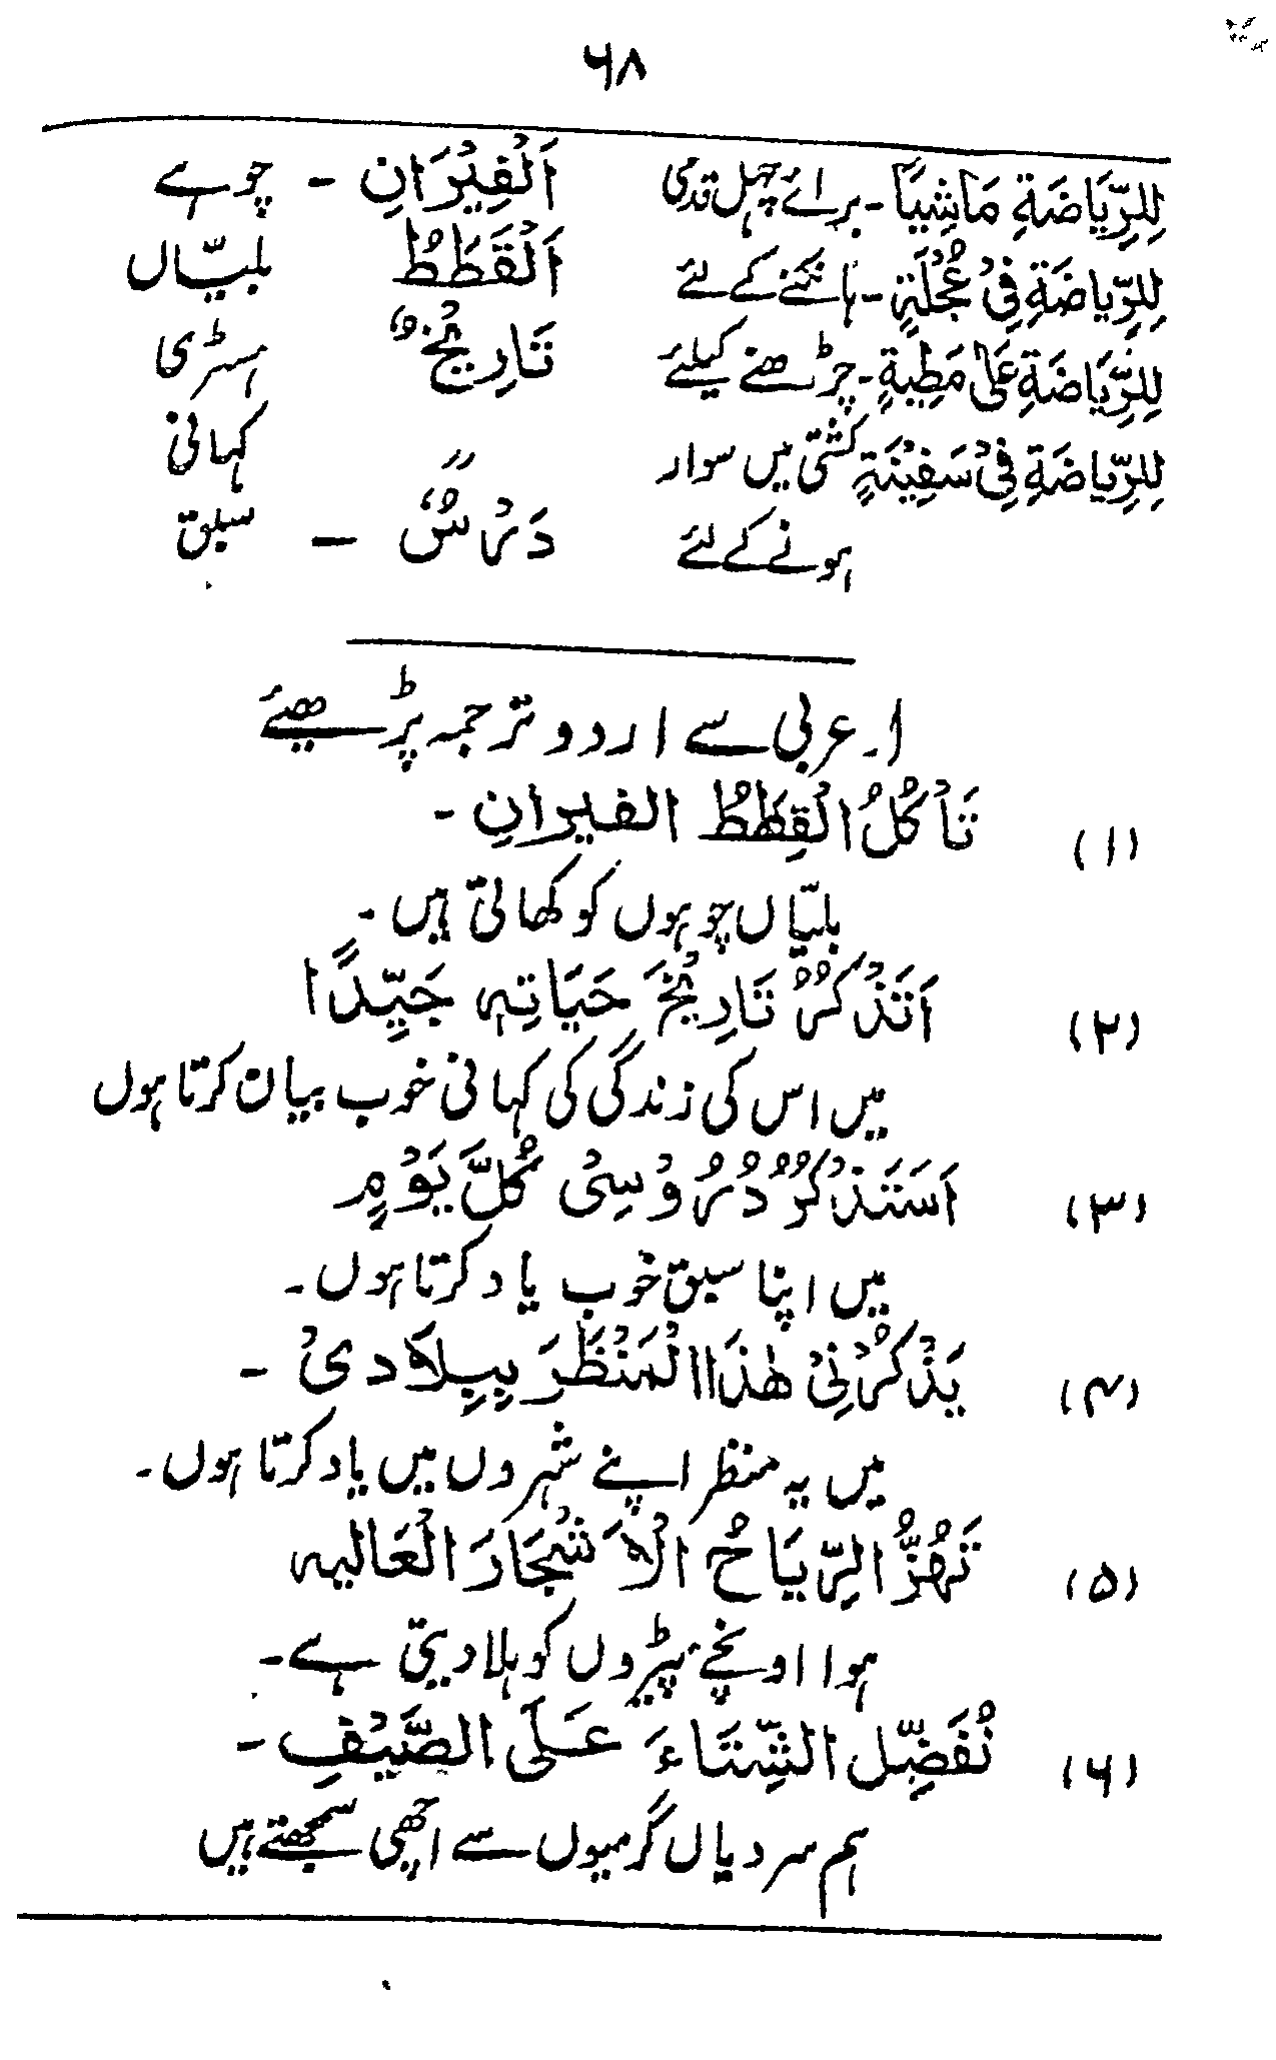 ۶۸
لِلرِّيَاضَةِ مَاشِيًا - برائے چہل قدمی
لِلرِّيَاضَةِ فِيْ عُجْلَةٍ - ہانکنے کے لئے
لِلرِّيَاضَةِ عَلىٰ مَطِيةٍ - چڑھنے کیلئے
لِلرِّيَاضَةِ فِيْ سَفِيْنَةٍ کشتی میں سوار
ہونے کے لئے
اَلْفِيْرَانِ - چوہے
اَلْقَطَطُ بلیّاں
تَارِيْخٌ ہسٹری
کہانی
دَرْسٌ - سبق
۱۔ عربی سے اردو ترجمہ پڑھیئے
(۱) تَأكُلُ الْقِطَطُ الفيرانِ -
بلیّاں چوہوں کو کھاتی ہیں -
(۲) اَتَذْكُرُ تَارِيْخَ حَيَاتِہٖ جَيِّدًا
میں اس کی زندگی کی کہانی خوب بیان کرتا ہوں
(۳) اَسَتَذْكُرُ دُرُوْسِیْ كُلَّ يَوْمٍ
میں اپنا سبق خوب یاد کرتا ہوں۔
(۴) يَذْكُرْنِیْ هٰذَا الْمَنْظَرَ بِبِلاَدیْ -
میں یہ منظر اپنے شہروں میں یاد کرتا ہوں۔
(۵) تَهُزُّ الرِّيَاحُ الْاَشْجَارَ الْعَاليہ
ہوا اونچے پیڑوں کو ہلا دیتی ہے۔
(۶) نُفَضِّل الشِّتَاءَ عَلَى الصَّيْفِ -
ہم سردیاں گرمیوں سے اچھی سمجھتے ہیں